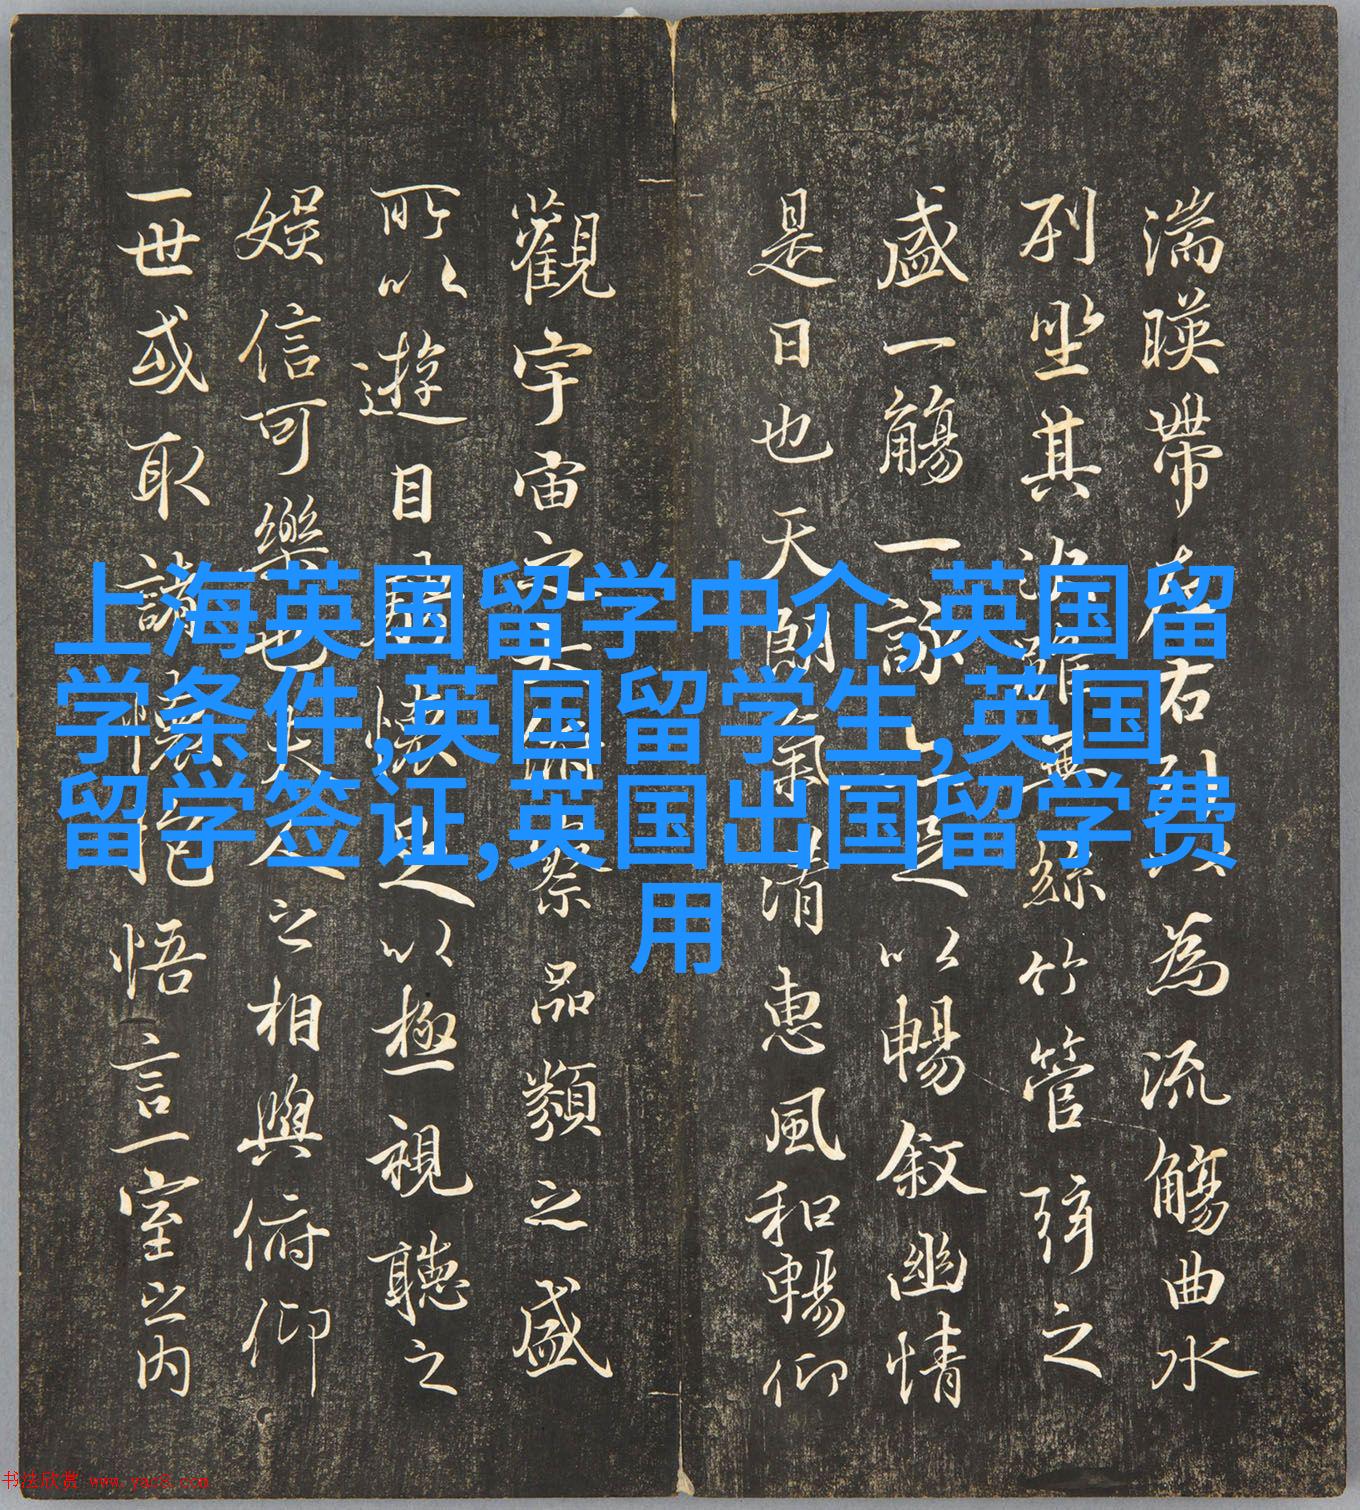 湍暎帶左右引以為流觴曲水
列坐其次雖無絲竹管弦之
盛一觴一詠亦足以暢敘幽情
是日也天朗氣清惠風和暢仰
觀宇宙之大俯察品類之盛
所以遊目騁懷足以極視聽之
娛信可樂也夫人之相與俯仰
一世或取諸懷抱悟言一室之内
上海英国留学中介,英国留
学条件,英国留学生,英国
留学签证,英国出国留学费
用
书法欣赏 www.yac8.com